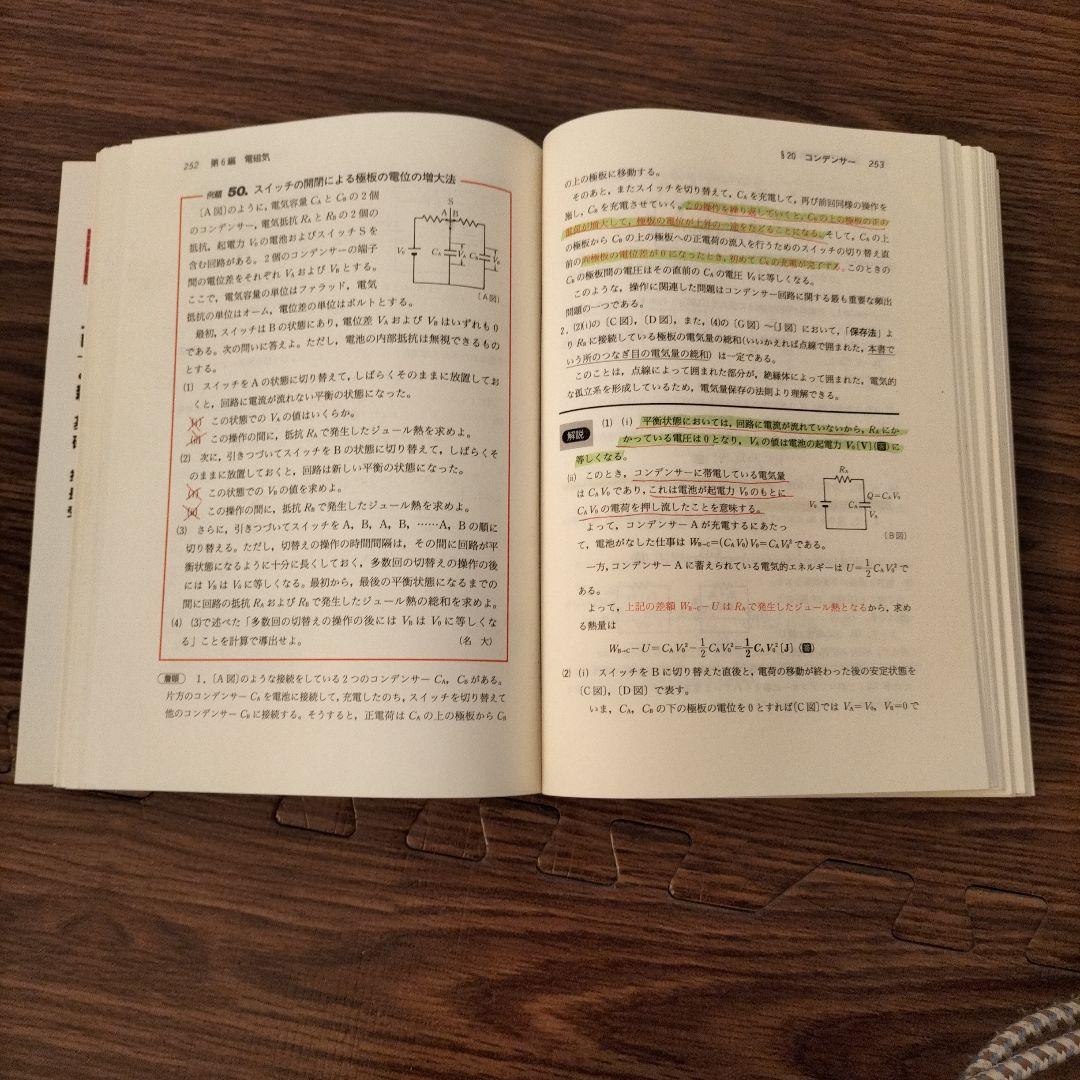 252 第6編 電磁気
例題 50. スイッチの開閉による極板の電位の増大法
〔A図〕のように，電気容量 CA と CB の2個
のコンデンサー，電気抵抗 RA と RB の2個の
抵抗，起電力 V0 の電池およびスイッチSを
含む回路がある。2個のコンデンサーの端子
間の電位差をそれぞれ VA および VB とする。
ここで，電気容量の単位はファラッド，電気
抵抗の単位はオーム，電位差の単位はボルトとする。
S
A B
V0
CA
VA
CB
VB
〔A図〕
最初，スイッチはBの状態にあり，電位差 VA および VB はいずれも0
である。次の問いに答えよ。ただし，電池の内部抵抗は無視できるもの
とする。
(1) スイッチをAの状態に切り替えて，しばらくそのままに放置してお
くと，回路に電流が流れない平衡の状態になった。
(i) この状態での VA の値はいくらか。
(ii) この操作の間に，抵抗 RA で発生したジュール熱を求めよ。
(2) 次に，引きつづいてスイッチをBの状態に切り替えて，しばらくそ
のままに放置しておくと，回路は新しい平衡の状態になった。
(i) この状態での VB の値を求めよ。
(ii) この操作の間に，抵抗 RB で発生したジュール熱を求めよ。
(3) さらに，引きつづいてスイッチをA，B，A，B，……A，Bの順に
切り替える。ただし，切替えの操作の時間間隔は，その間に回路が平
衡状態になるように十分に長くしておく，多数回の切替えの操作の後
には VB は V0 に等しくなる。最初から，最後の平衡状態になるまでの
間に回路の抵抗 RA および RB で発生したジュール熱の総和を求めよ。
(4) (3)で述べた「多数回の切替えの操作の後には VB は V0 に等しくな
る」ことを計算で導出せよ。 （名 大）
着眼 1.〔A図〕のような接続をしている2つのコンデンサー CA，CB がある。
片方のコンデンサー CA を電池に接続して，充電したのち，スイッチを切り替えて
他のコンデンサー CB に接続する。そうすると，正電荷は CA の上の極板から CB
§20 コンデンサー 253
の上の極板に移動する。
そのあと，またスイッチを切り替えて，CA を充電して，再び前回同様の操作を
施し，CB を充電させていく。この操作を繰り返していくと，CB の上の極板の正の
電荷が増大して，極板の電位が上昇の一途をたどることになる。そして，CA の上
の極板から CB の上の極板への正電荷の流入を行うためのスイッチの切り替え直
前の両極板の電位差が0になったとき，初めて CB の充電が完了する。このときの
CB の極板間の電圧はその直前の CA の電圧 V0 に等しくなる。
このような，操作に関連した問題はコンデンサー回路に関する最も重要な頻出
問題の一つである。
2. (2)(i)の〔C図〕，〔D図〕，また，(4)の〔G図〕～〔J図〕において，「保存法」よ
り RB に接続している極板の電気量の総和(いいかえれば点線で囲まれた，本書で
いう所のつなぎ目の電気量の総和）は一定である。
このことは，点線によって囲まれた部分が，絶縁体によって囲まれた，電気的
な孤立系を形成しているため，電気量保存の法則より理解できる。
解説 (1) (i) 平衡状態においては，回路に電流が流れていないから，RA にか
かっている電圧は0となり，VA の値は電池の起電力 V0〔V〕(答)に
等しくなる。
(ii) このとき，コンデンサーに帯電している電気量
は CAV0 であり，これは電池が起電力 V0 のもとに
CAV0 の電荷を押し流したことを意味する。
よって，コンデンサーAが充電するにあたっ
て，電池がなした仕事は WB→C=(CAV0)V0=CAV0² である。
RA
V0
CA
Q=CAV0
VA
〔B図〕
一方，コンデンサーAに蓄えられている電気的エネルギーは U=1/2 CAV0² で
ある。
よって，上記の差額 WB→C−U は RA で発生したジュール熱となるから，求め
る熱量は
WB→C−U=CAV0²−1/2 CAV0²=1/2 CAV0²〔J〕 (答)
(2) (i) スイッチをBに切り替えた直後と，電荷の移動が終わった後の安定状態を
〔C図〕，〔D図〕で表す。
いま，CA，CB の下の極板の電位を0とすれば〔C図〕では VA=V0，VB=0で